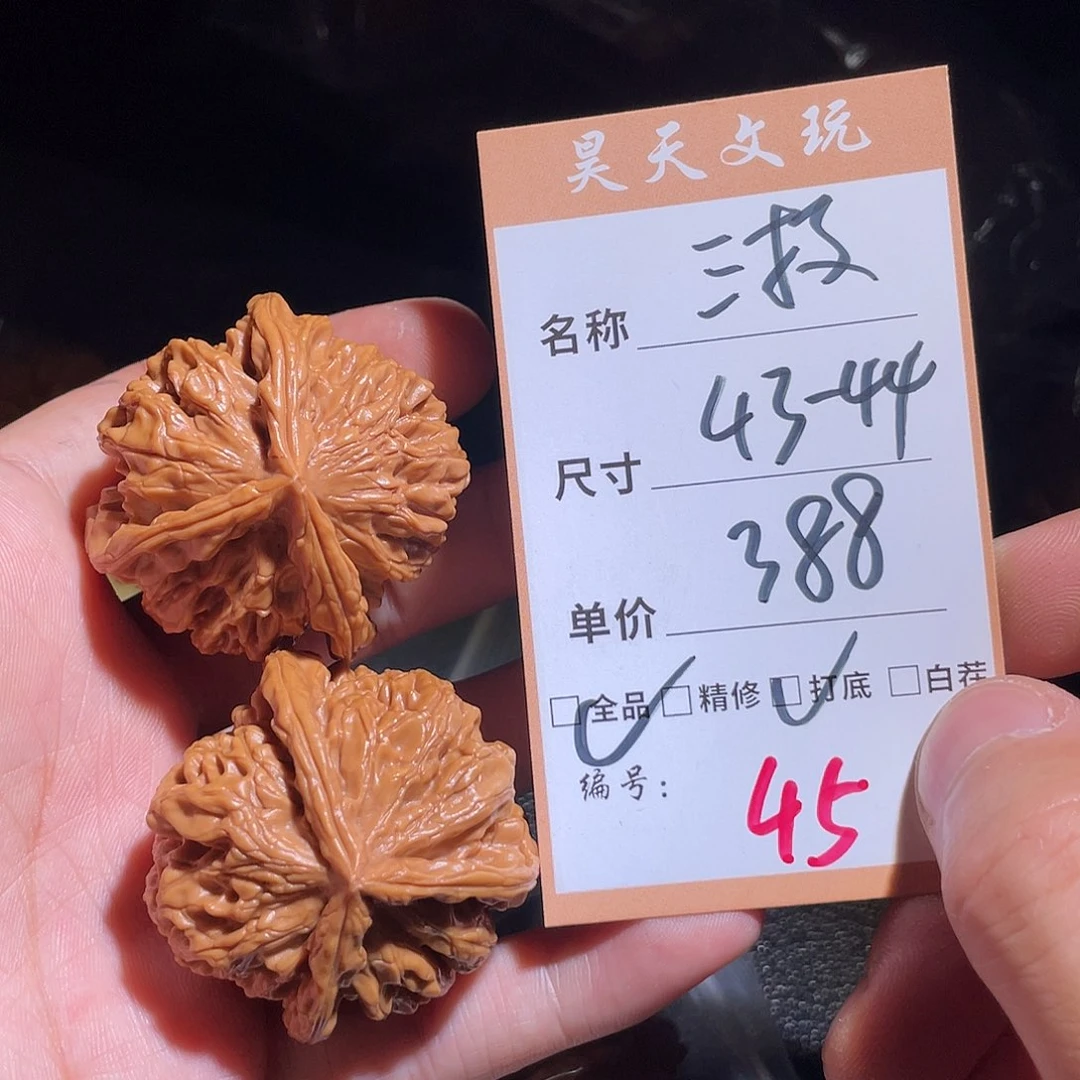 昊天文玩
名称 三
尺寸 43-44
单价 388
☑全品 □精修 ☑打底 □白茬
编号: 45